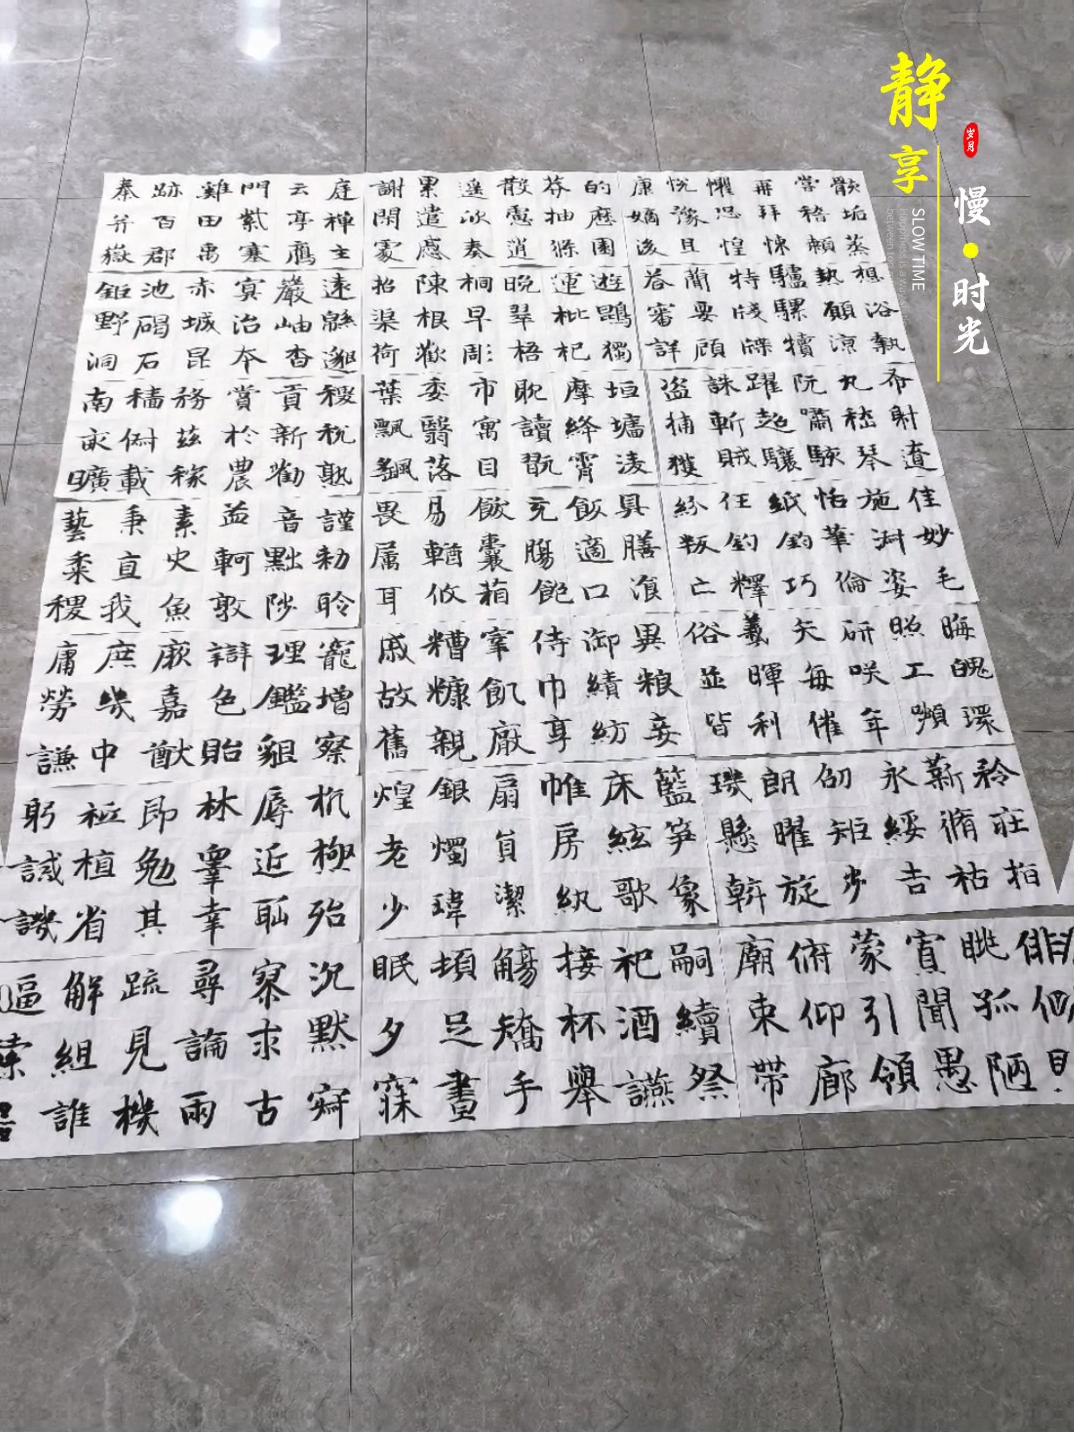 静享
慢·时光
岁月
SLOW TIME
庭禅主
云亭雁
門紫塞
雞田禹
跡百郡
秦并嶽
遠緜邈
巖岫杳
冥治本
赤城昆
池碣石
鉅野洞
稷稅熟
貢新勸
賞於農
務茲稼
穡俶載
南畝曠
謹勑聆
音黜陟
孟軻敦
素史魚
秉直我
藝黍稷
寵增察
理鑑貌
辯色貽
厥嘉猷
庶幾中
庸勞謙
抗極殆
辱近恥
林皋幸
即勉其
祗植省
躬誡譏
沉默寂
寥求古
尋論兩
疏見機
解組誰
逼索居
的歷園
莽抽條
散慮逍
遙欣奏
累遣慼
謝閑處
遊鵾獨
運枇杷
晚翠梧
桐早彫
陳根歡
招渠荷
垣墻凌
摩絳霄
耽讀翫
市寓目
委翳落
葉飄颻
具膳飡
飯適口
充腸飽
飲囊箱
易輶攸
畏屬耳
異糧妾
御績紡
侍巾
宰飢厭
糟糠親
戚故舊
籃笋象
床絃歌
帷房紈
扇員潔
銀燭瑋
煌老少
嗣續祭
祀酒讌
接杯舉
觴矯手
頓足晝
眠夕寐
骸垢蒸
嘗稽顙
再拜悚
懼恐惶
悅豫且
康嫡後
想浴執
熱願涼
驢騾犢
特牋牒
簡要顧
答審詳
布射遼
丸嵇琴
阮嘯駭
躍超驤
誅斬賊
盜捕獲
佳妙毛
施淑姿
恬筆倫
紙鈞巧
任釣釋
紛叛亡
晦魄環
照工嚬
研咲年
矢每催
羲暉利
俗並皆
矜莊指
薪脩祜
永綏吉
劭矩步
朗曜旋
璣懸斡
俳徊
眺孤陋
寡聞愚
蒙引領
俯仰廊
廟束帶